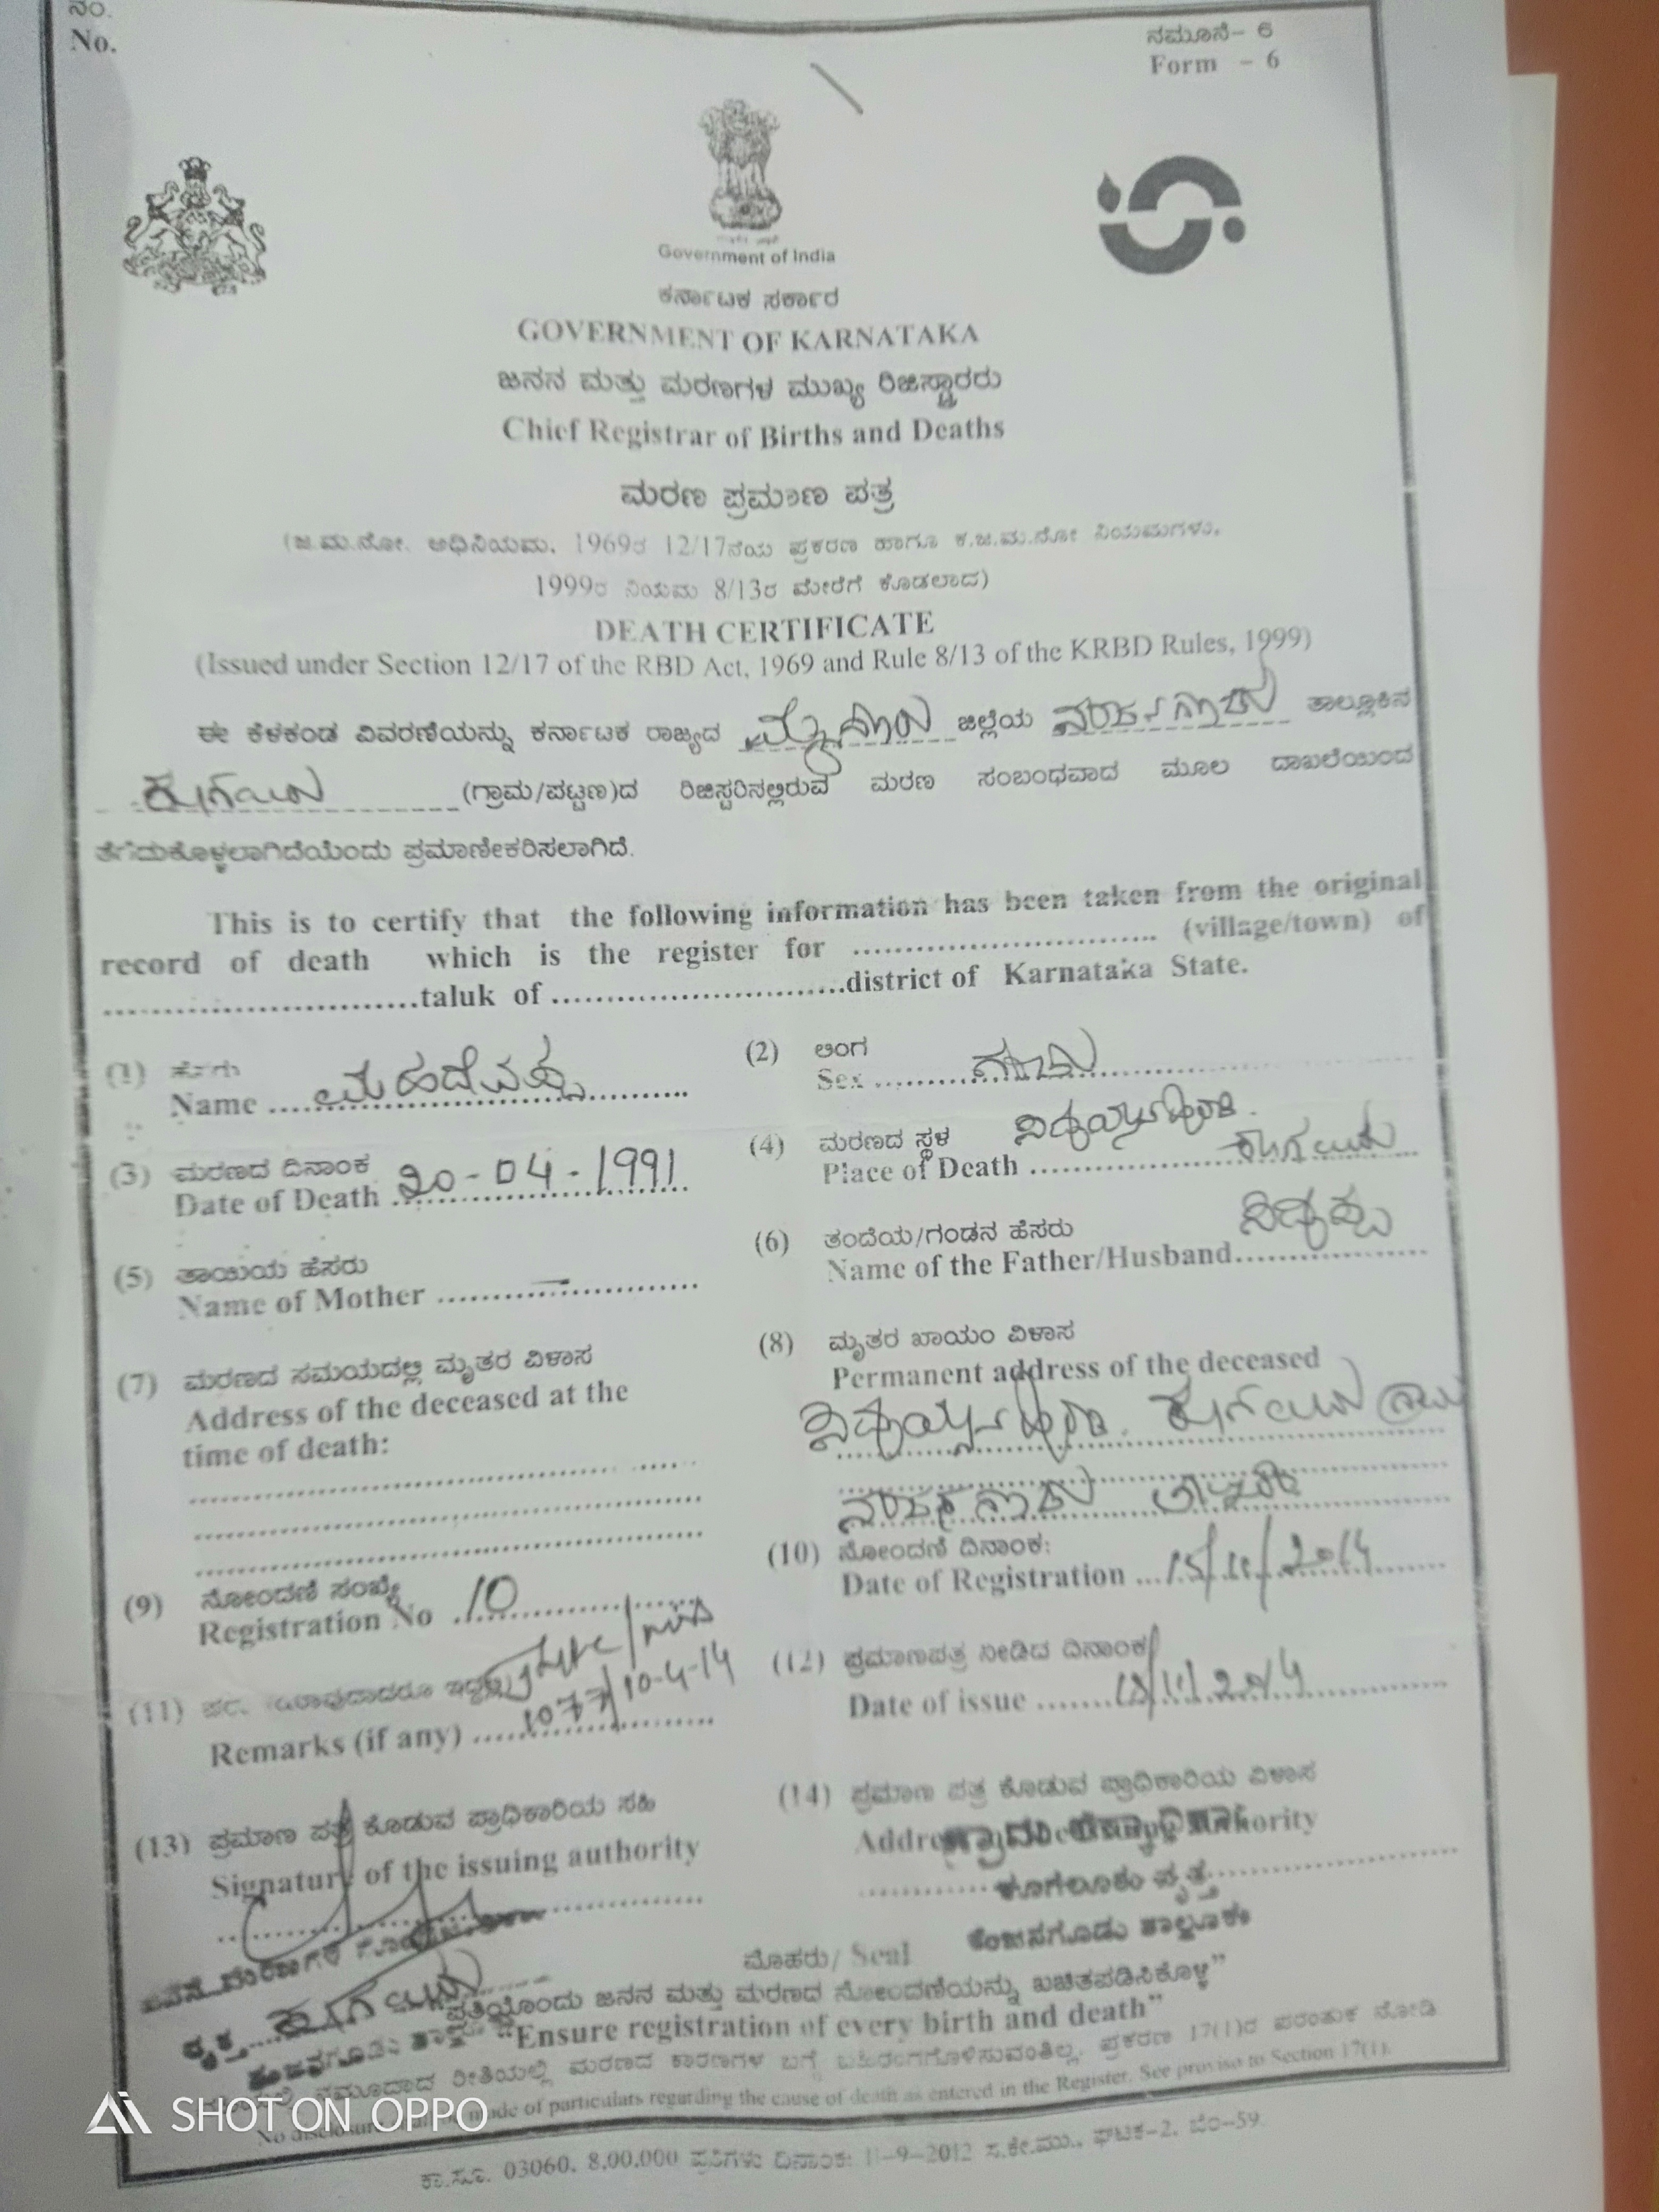 ನಂ.
No.
ನಮೂನೆ- 6
Form - 6
Government of India
ಕರ್ನಾಟಕ ಸರ್ಕಾರ
GOVERNMENT OF KARNATAKA
ಜನನ ಮತ್ತು ಮರಣಗಳ ಮುಖ್ಯ ರಿಜಿಸ್ಟ್ರಾರರು
Chief Registrar of Births and Deaths
ಮರಣ ಪ್ರಮಾಣ ಪತ್ರ
(ಜ.ಮ.ನೋ. ಅಧಿನಿಯಮ, 1969ರ 12/17ನೆಯ ಪ್ರಕರಣ ಹಾಗೂ ಕ.ಜ.ಮ.ನೋ ನಿಯಮಗಳು,
1999ರ ನಿಯಮ 8/13ರ ಮೇರೆಗೆ ಕೊಡಲಾದ)
DEATH CERTIFICATE
(Issued under Section 12/17 of the RBD Act, 1969 and Rule 8/13 of the KRBD Rules, 1999)
ಈ ಕೆಳಕಂಡ ವಿವರಣೆಯನ್ನು ಕರ್ನಾಟಕ ರಾಜ್ಯದ ಮೈಸೂರು ಜಿಲ್ಲೆಯ ನಂಜನಗೂಡು ತಾಲ್ಲೂಕಿನ
(ಗ್ರಾಮ/ಪಟ್ಟಣ)ದ ರಿಜಿಸ್ಟರಿನಲ್ಲಿರುವ ಮರಣ ಸಂಬಂಧವಾದ ಮೂಲ ದಾಖಲೆಯಿಂದ
ತೆಗೆದುಕೊಳ್ಳಲಾಗಿದೆಯೆಂದು ಪ್ರಮಾಣೀಕರಿಸಲಾಗಿದೆ.
This is to certify that the following information has been taken from the original
record of death which is the register for .............................. (village/town) of
..............................taluk of ..............................district of Karnataka State.
(1) ಹೆಸರು
Name .... ಮಹದೇವಪ್ಪ
(2) ಲಿಂಗ
Sex ....
(3) ಮರಣದ ದಿನಾಂಕ
Date of Death 20-04-1991
(4) ಮರಣದ ಸ್ಥಳ
Place of Death ....
(5) ತಾಯಿಯ ಹೆಸರು
Name of Mother .... –
(6) ತಂದೆಯ/ಗಂಡನ ಹೆಸರು
Name of the Father/Husband.... ಸಿದ್ದಪ್ಪ
(7) ಮರಣದ ಸಮಯದಲ್ಲಿ ಮೃತರ ವಿಳಾಸ
Address of the deceased at the
time of death:
(8) ಮೃತರ ಖಾಯಂ ವಿಳಾಸ
Permanent address of the deceased
ನಂಜನಗೂಡು
(9) ನೋಂದಣಿ ಸಂಖ್ಯೆ
Registration No .10
(10) ನೋಂದಣಿ ದಿನಾಂಕ:
Date of Registration ...15/11/2014
(11) ಷರಾ. ಯಾವುದಾದರೂ ಇದ್ದಲ್ಲಿ
Remarks (if any) .... 1077/10-4-14
(12) ಪ್ರಮಾಣಪತ್ರ ನೀಡಿದ ದಿನಾಂಕ
Date of issue .......
(13) ಪ್ರಮಾಣ ಪತ್ರ ಕೊಡುವ ಪ್ರಾಧಿಕಾರಿಯ ಸಹಿ
Signature of the issuing authority
(14) ಪ್ರಮಾಣ ಪತ್ರ ಕೊಡುವ ಪ್ರಾಧಿಕಾರಿಯ ವಿಳಾಸ
Address of the issuing authority
ನಂಜನಗೂಡು ತಾಲ್ಲೂಕು
ಮೊಹರು/ Seal
"ಪ್ರತಿಯೊಂದು ಜನನ ಮತ್ತು ಮರಣದ ನೋಂದಣಿಯನ್ನು ಖಚಿತಪಡಿಸಿಕೊಳ್ಳಿ"
"Ensure registration of every birth and death"
ನಮೂದಾದ ರೀತಿಯಲ್ಲಿ ಮರಣದ ಕಾರಣಗಳ ಬಗ್ಗೆ ಬಹಿರಂಗಗೊಳಿಸುವಂತಿಲ್ಲ. ಪ್ರಕರಣ 17(1)ರ ಪರಂತುಕ ನೋಡಿ
No disclosure made of particulars regarding the cause of death as entered in the Register. See proviso to Section 17(1).
ಕಾ.ಸೂ. 03060. 8,00,000 ಪ್ರತಿಗಳು ದಿನಾಂಕ: 11-9-2012 ಸ.ಕೇ.ಮು., ಘಟಕ-2, ಬೆಂ-59
SHOT ON OPPO